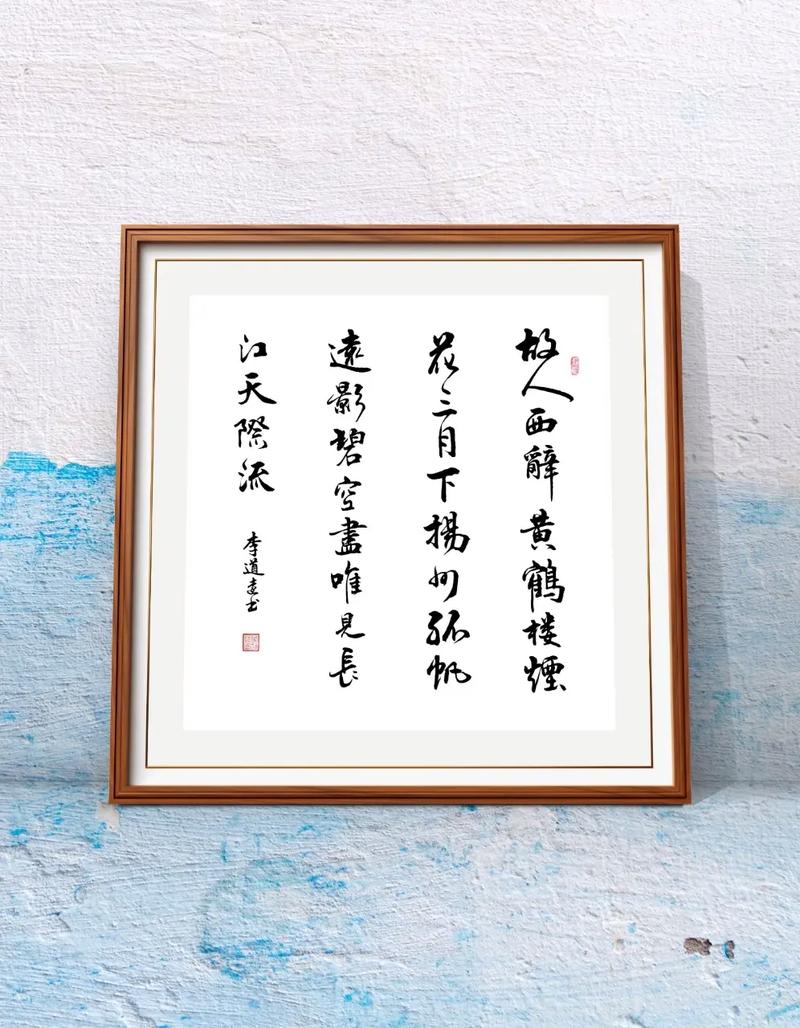 故人西辭黄鶴楼煙
花三月下揚州孤帆
遠影碧空盡唯見長
江天際流
李道书